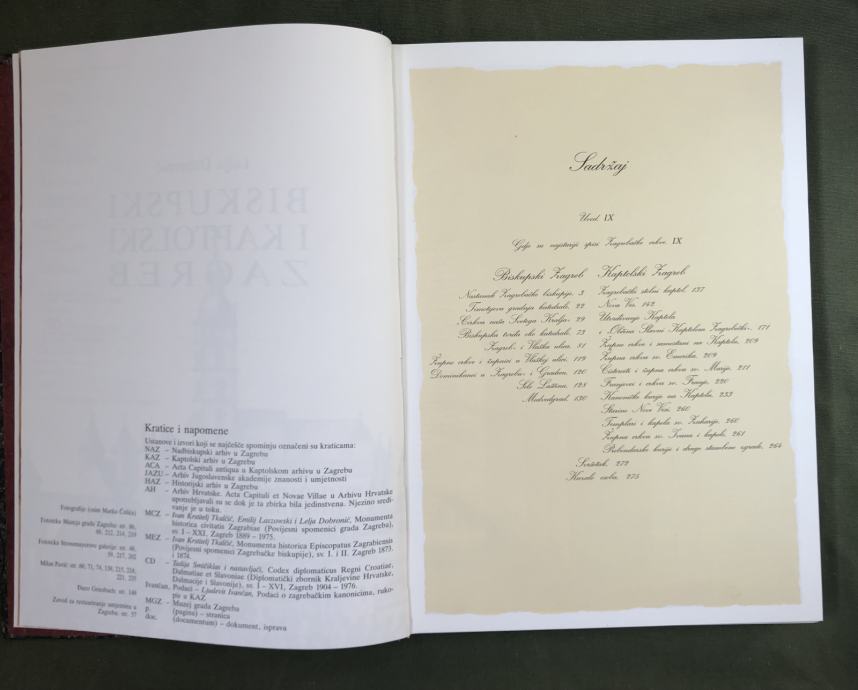 Kratice i napomene
Ustanove i izvori koji se najčešće spominju označeni su kraticama:
NAZ – Nadbiskupski arhiv u Zagrebu
KAZ – Kaptolski arhiv u Zagrebu
ACA – Acta Capituli antiqua u Kaptolskom arhivu u Zagrebu
JAZU – Arhiv Jugoslavenske akademije znanosti i umjetnosti
HAZ – Historijski arhiv u Zagrebu
AH – Arhiv Hrvatske. Acta Capituli et Novae Villae u Arhivu Hrvatske
upotrebljavali su se dok je ta zbirka bila jedinstvena. Njezino sredi-
vanje je u toku.
MCZ – Ivan Krstitelj Tkalčić, Emilij Laszowski i Lelja Dobronić, Monumenta
historica civitatis Zagrabiae (Povijesni spomenici grada Zagreba),
sv. I – XXI, Zagreb 1889 – 1975.
MEZ – Ivan Krstitelj Tkalčić, Monumenta historica Episcopatus Zagrabiensis
(Povijesni spomenici Zagrebačke biskupije), sv. I. i II. Zagreb 1873.
i 1874.
CD – Tadija Smičiklas i nastavljači, Codex diplomaticus Regni Croatiae,
Dalmatiae et Slavoniae (Diplomatički zbornik Kraljevine Hrvatske,
Dalmacije i Slavonije), sv. I – XVI, Zagreb 1904 – 1976.
Ivančan, Podaci – Ljudevit Ivančan, Podaci o zagrebačkim kanonicima, ruko-
pis u KAZ
MGZ – Muzej grada Zagreba
p. (pagina) – stranica
doc. (documentum) – dokument, isprava
Fotografije (osim Marka Čolića)
Fototeka Muzeja grada Zagreba: str. 46,
66, 212, 214, 219
Fototeka Strossmayerove galerije: str. 46,
59, 217, 202
Milan Pavić: str. 60, 71, 74, 136, 215, 224,
221, 235
Đuro Griesbach: str. 148
Zavod za restauriranje umjetnina u
Zagrebu: str. 57
Sadržaj
Uvod. IX
Gdje su najstariji spisi Zagrebačke crkve. IX
Biskupski Zagreb
Nastanak Zagrebačke biskupije. 3
Timotejeva gradnja katedrale. 22
Crkva naša Svetoga Kralja. 29
Biskupska tvrđa oko katedrale. 73
Zagreb i Vlaška ulica. 81
Župne crkve i župnici u Vlaškoj ulici. 119
Dominikanci u Zagrebu i Gradecu. 120
Selo Laščina. 128
Medvedgrad. 130
Kaptolski Zagreb
Zagrebački stolni kaptol. 137
Nova Ves. 142
Utvrđivanje Kaptola
i »Općina Slavni Kaptolom Zagrebački«. 171
Župne crkve i samostani na Kaptolu. 209
Župna crkva sv. Emerika. 209
Cisterciti i župna crkva sv. Marije. 211
Franjevci i crkva sv. Franje. 220
Kanoničke kurije na Kaptolu. 233
Starine Nove Vesi. 260
Templari i kapela sv. Zaharije. 260
Župna crkva sv. Ivana i kapele. 261
Prebendarske kurije i druge stambene zgrade. 264
Svršetak. 272
Kazalo osoba. 275